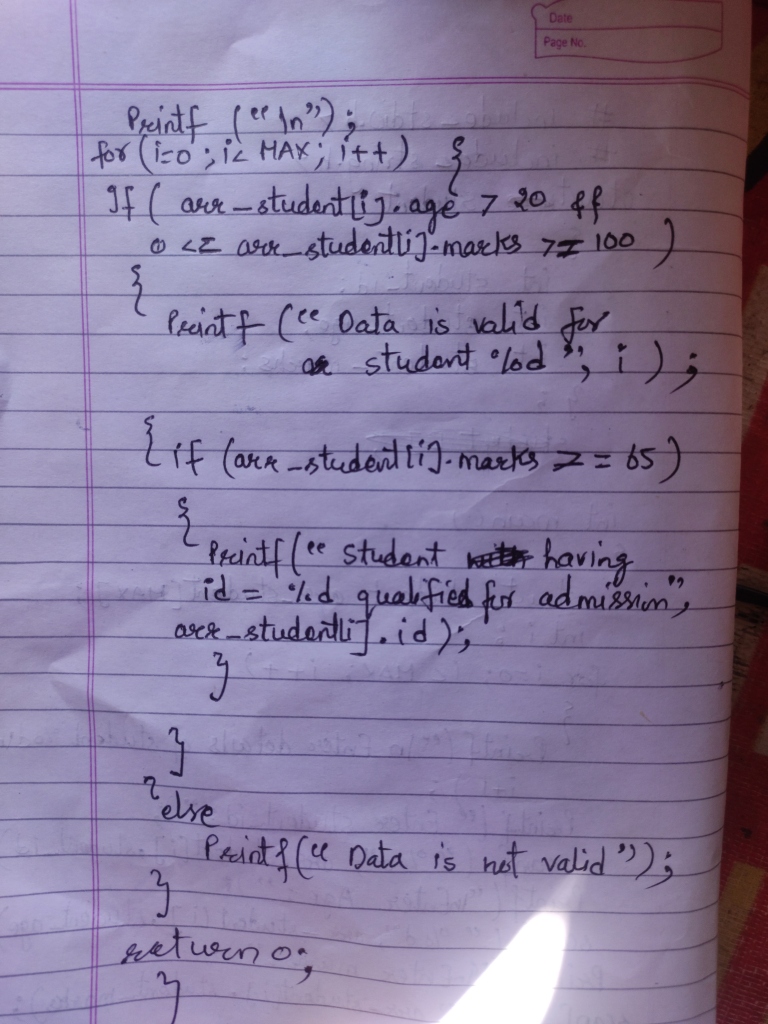 Date
Page No.
Printf (“ \n ”);
for (i=0 ; i< MAX ; i++) {
If ( arr_student[i].age > 20 &&
0 <= arr_student[i].marks >= 100 )
{
Printf (“ Data is valid for
student %d ”, i ) ;
{ if (arr_student[i].marks >= 65 )
{
Printf (“ student having
id = %d qualified for admission ”,
arr_student[i].id) ;
}
}
else
Printf (“ Data is not valid ”) ;
}
return 0 ;
}